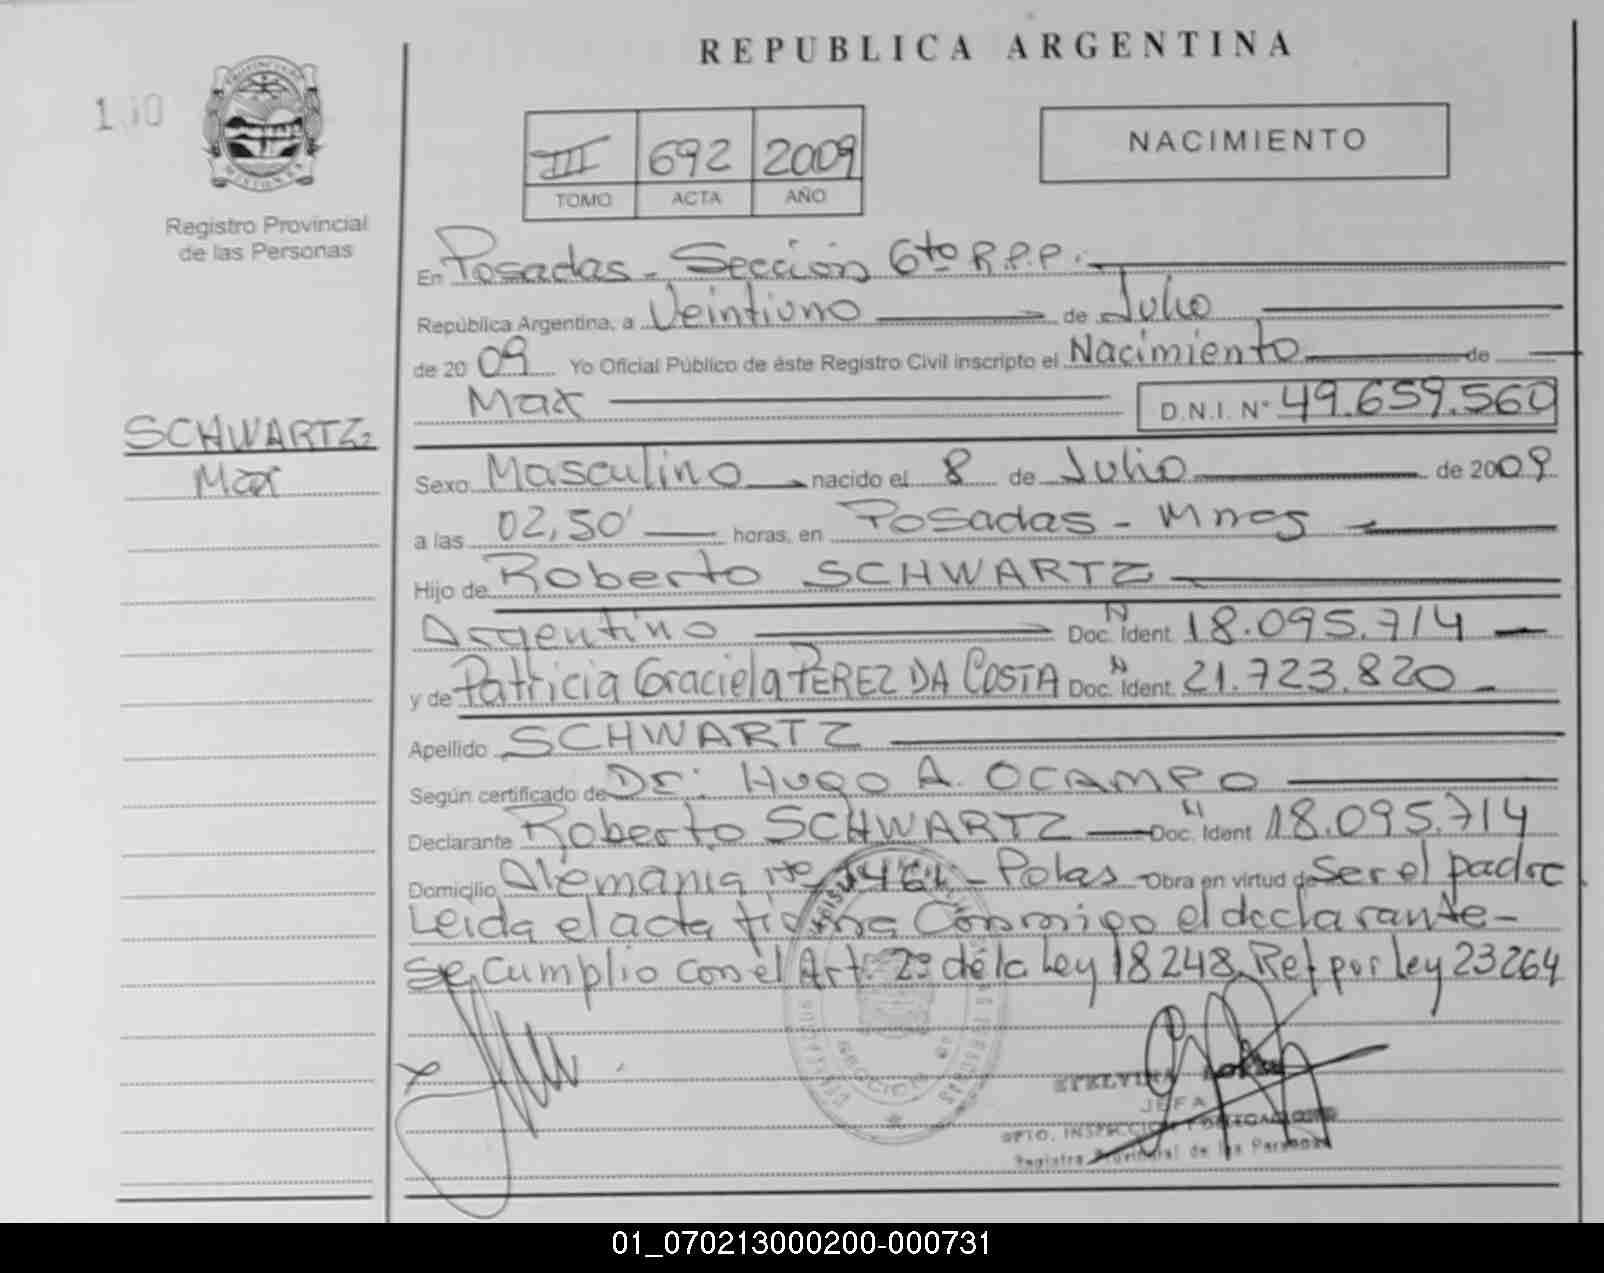 REPUBLICA ARGENTINA
PROVINCIA DE
MISIONES
Registro Provincial
de las Personas
III 692 2009
TOMO ACTA AÑO
NACIMIENTO
En Posadas - Sección 6to R.P.P.
República Argentina, a Veintiuno de Julio
de 2009 Yo Oficial Público de éste Registro Civil inscripto el Nacimiento de
Max D.N.I. Nº 49.659.560
SCHWARTZ
Max
Sexo Masculino nacido el 8 de Julio de 2009
a las 02,50' horas, en Posadas - Mnes
Hijo de Roberto SCHWARTZ
Argentino Doc. Ident. N 18.095.714
y de Patricia Graciela PEREZ DA COSTA Doc. Ident. N 21.723.820
Apellido SCHWARTZ
Según certificado de Dr: Hugo A. OCAMPO
Declarante Roberto SCHWARTZ Doc. Ident N 18.095.714
Domicilio Alemania Nº - Pdas Obra en virtud de Ser el padre
Leida el acta firma Conmigo el declarante -
Se cumplio con el Art. 2º de la Ley 18248 Ref por Ley 23264
SECCION
JEFA
DPTO. INSPECCION Y DELEGACIONES
Registro Provincial de las Personas
01_070213000200-000731